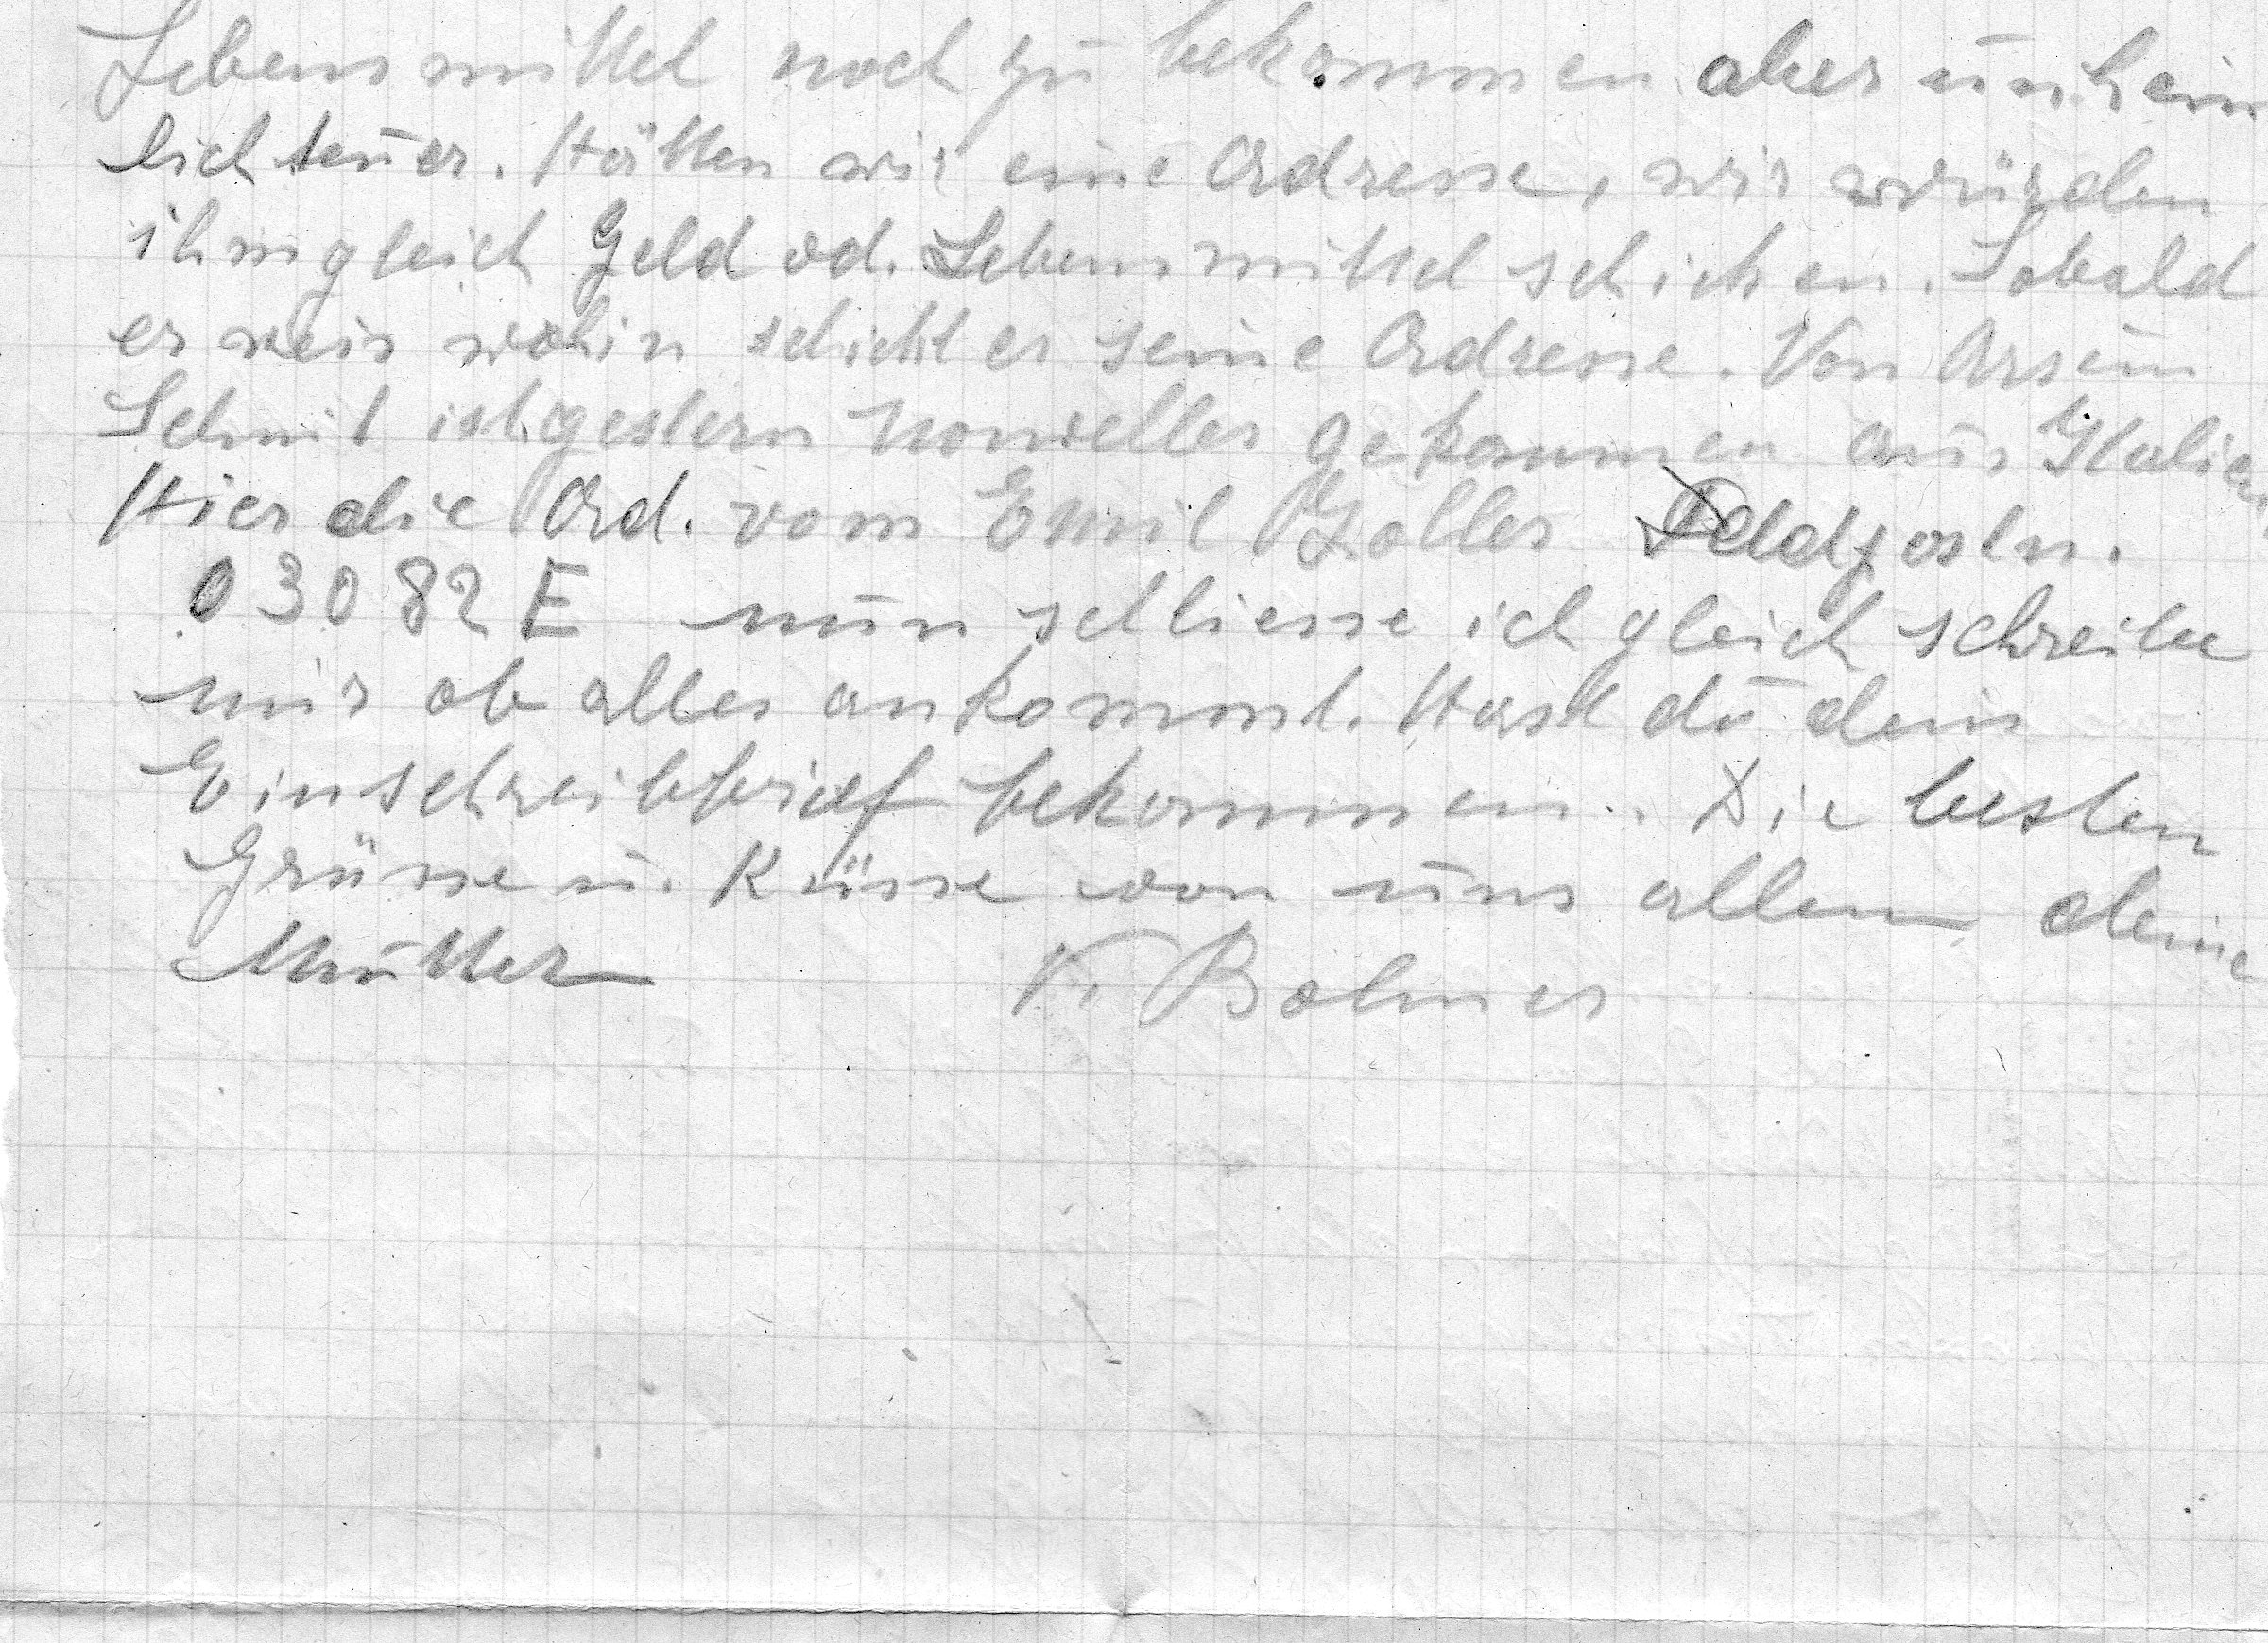 Lebensmittel noch zu bekommen aber unheim
lich teuer. Hätten wir eine Adresse, wir würden
ihm gleich Geld od. Lebensmittel schicken. Sobald
er weis wohin schickt er seine Adresse. Von Arsen
Schmit ist gestern nouvelles gekommen aus Italien
Hier die Ad. vom Emil Zoller Feldpostn.
03082E nun schliesse ich gleich schreibe
mir ob alles ankommt. Hast du dein
Einschreibbrief bekommen. Die besten
Grüsse u. Küsse von uns allen deine
Mutter V. Bolmer